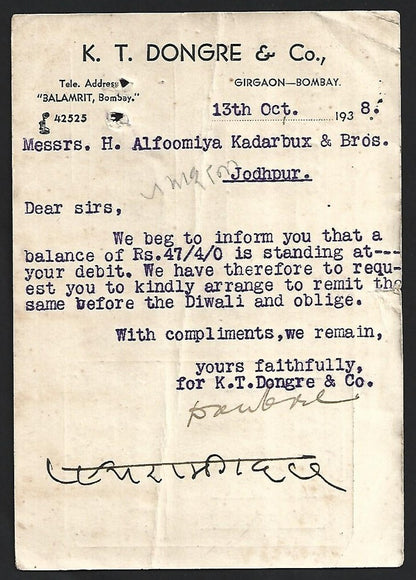 K. T. DONGRE & Co.,
Tele. Address
"BALAMRIT, Bombay."
42525
GIRGAON—BOMBAY.
13th Oct. 1938.
Messrs. H. Alfoomiya Kadarbux & Bros.
Jodhpur.
Dear sirs,
We beg to inform you that a
balance of Rs.47/4/0 is standing at---
your debit. We have therefore to requ-
est you to kindly arrange to remit the
same before the Diwali and oblige.
With compliments,we remain,
yours faithfully,
for K.T.Dongre & Co.